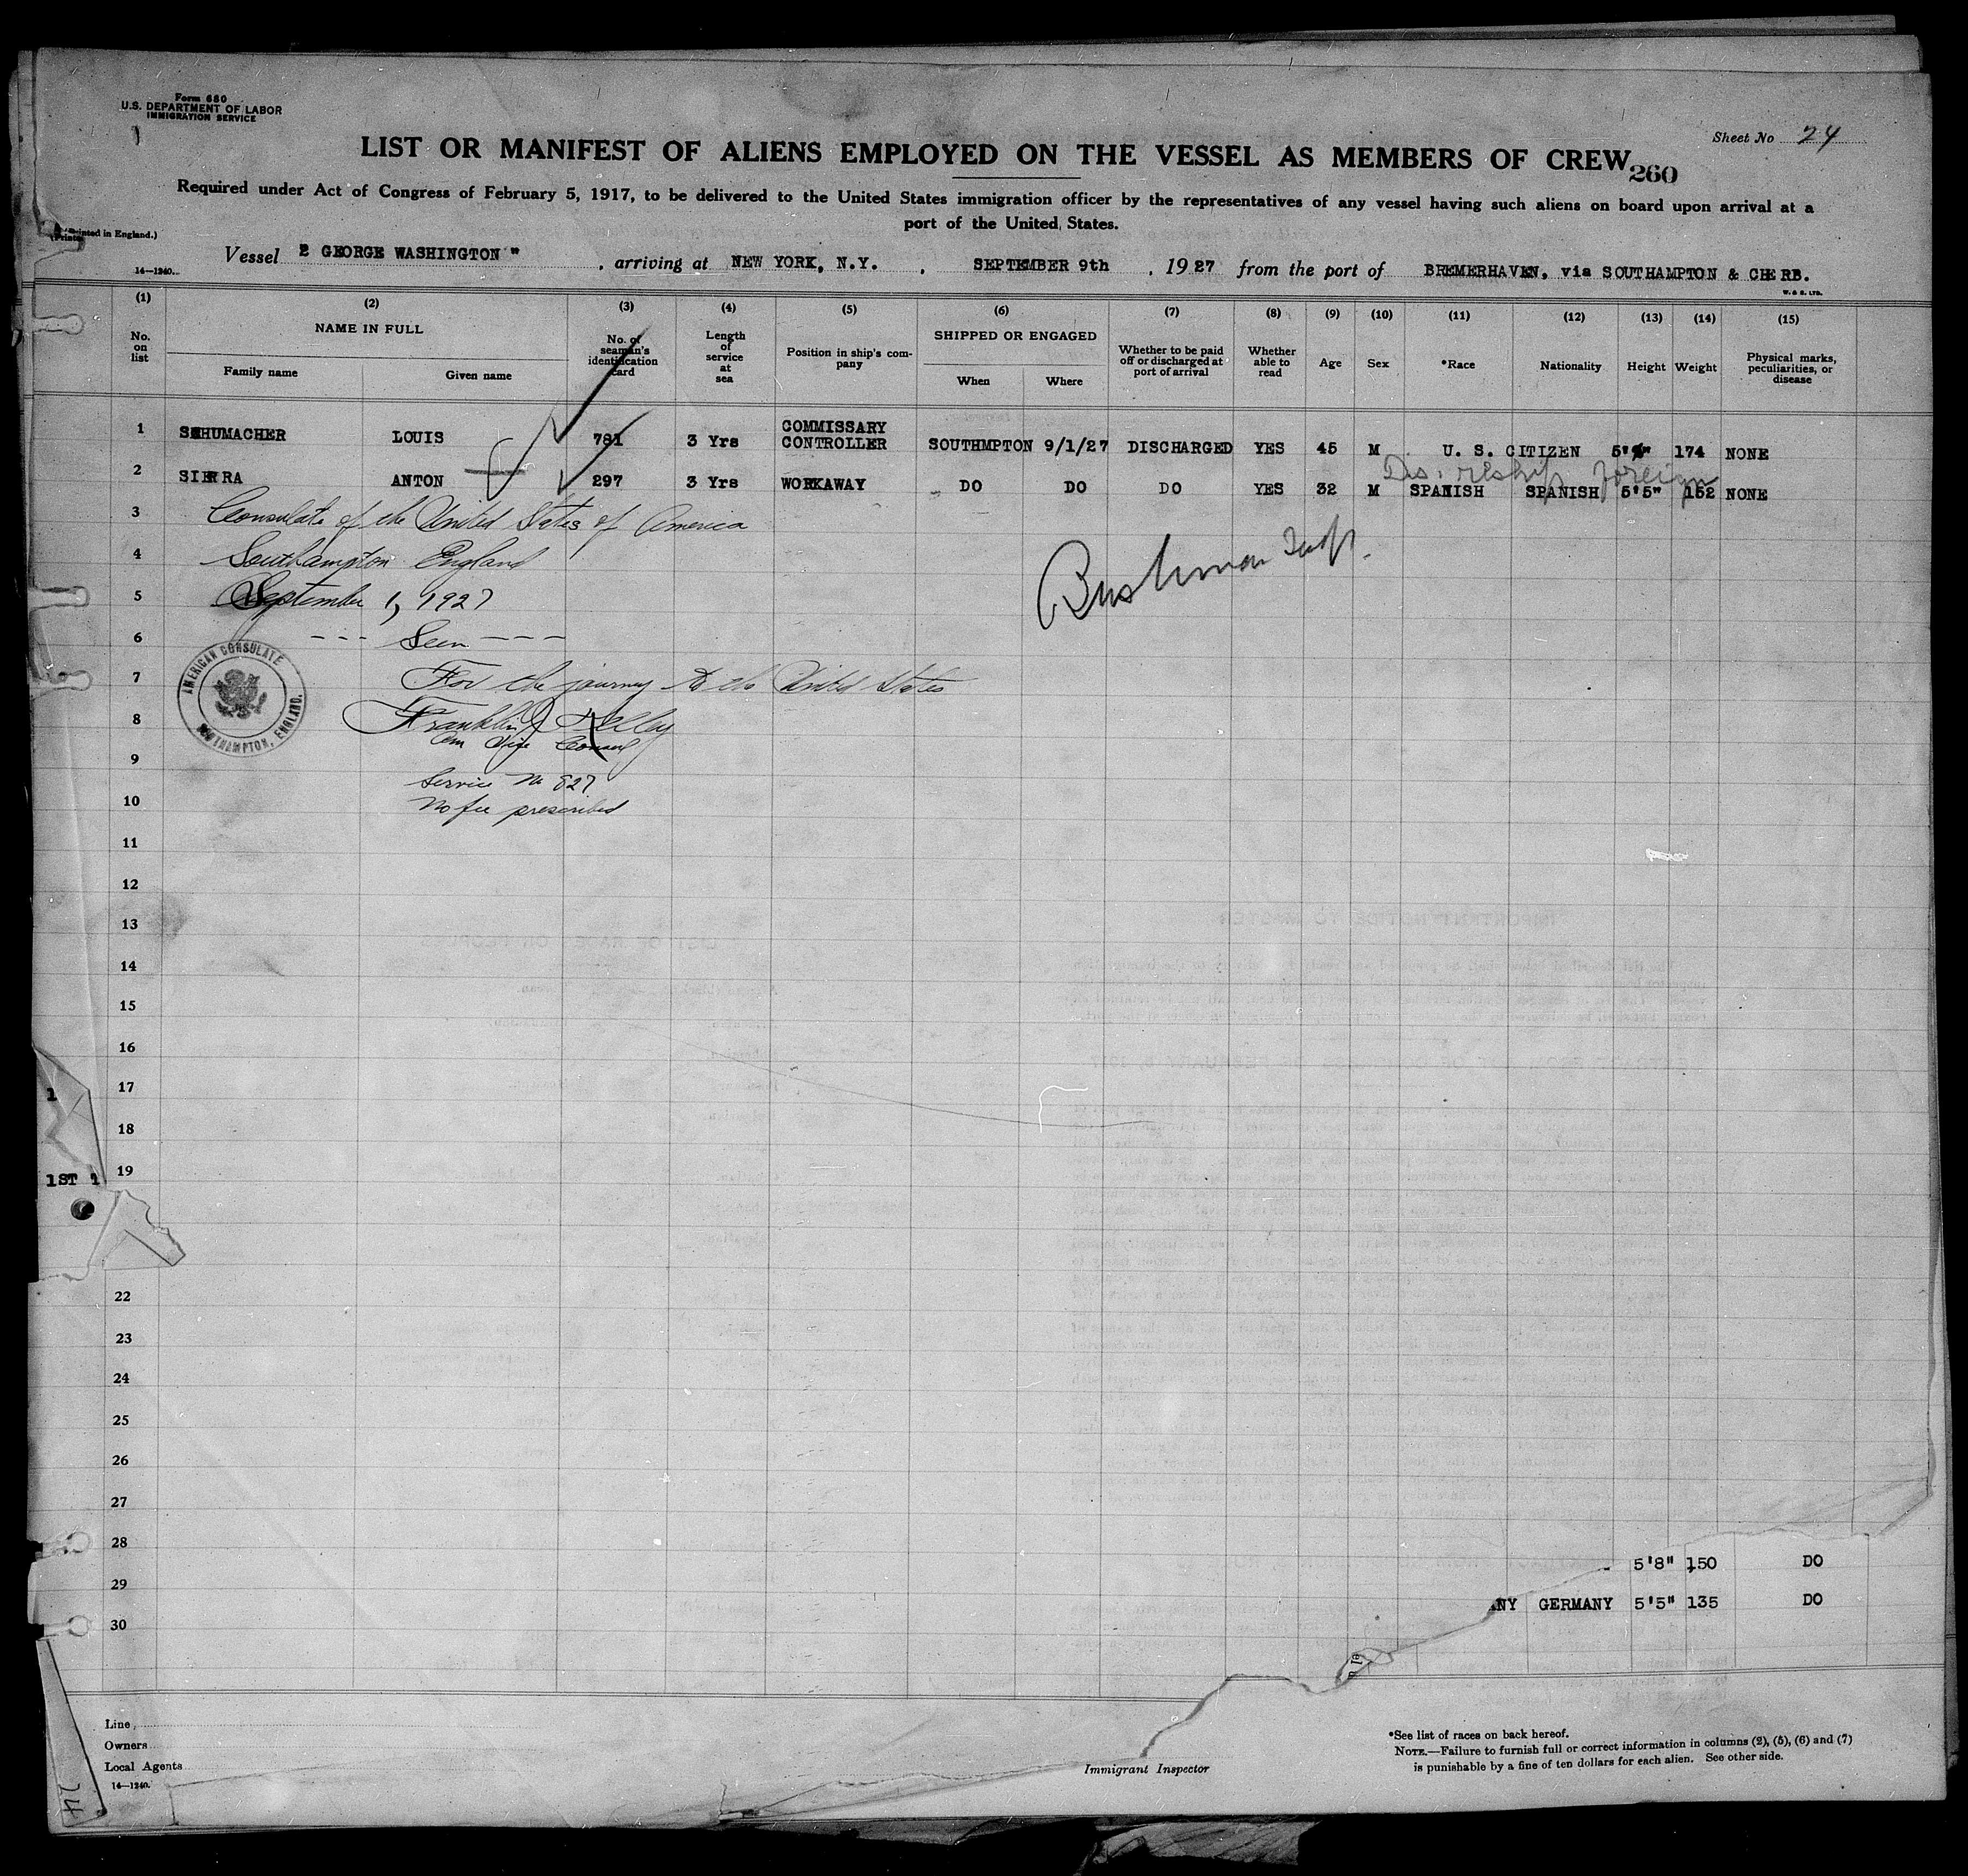 Form 680
U.S. DEPARTMENT OF LABOR
IMMIGRATION SERVICE
Sheet No 24
LIST OR MANIFEST OF ALIENS EMPLOYED ON THE VESSEL AS MEMBERS OF CREW
260
Required under Act of Congress of February 5, 1917, to be delivered to the United States immigration officer by the representatives of any vessel having such aliens on board upon arrival at a
port of the United States.
(Printed in England.)
Vessel 2 GEORGE WASHINGTON ", arriving at NEW YORK, N.Y., SEPTEMBER 9th, 1927 from the port of BREMERHAVEN, via SOUTHAMPTON & CHERB.
14—1240.
W. & S. LTD.
(1) (2) (3) (4) (5) (6) (7) (8) (9) (10) (11) (12) (13) (14) (15)
No. on list
NAME IN FULL
Family name
Given name
No. of seaman's identification card
Length of service at sea
Position in ship's company
SHIPPED OR ENGAGED
When
Where
Whether to be paid off or discharged at port of arrival
Whether able to read
Age
Sex
*Race
Nationality
Height
Weight
Physical marks, peculiarities, or disease
1 SCHUMACHER LOUIS 781 3 Yrs COMMISSARY CONTROLLER SOUTHMPTON 9/1/27 DISCHARGED YES 45 M U. S. CITIZEN 174 NONE
Dis. reship foreign
2 SIERRA ANTON 297 3 Yrs WORKAWAY DO DO DO YES 32 M SPANISH SPANISH 5'5" 152 NONE
3 Consulate of the United States of America
4 Southampton England
5 September 1, 1927
6 --- Seen ---
7 For the journey to the United States
8 Franklin Kelley
Am Vice Consul
9
Service No 827
10 No fee prescribed
Bushman Insp.
AMERICAN CONSULATE
SOUTHAMPTON, ENGLAND.
11
12
13
14
15
16
17
18
19
1
1ST
22
23
24
25
26
27
28
5'8" 150 DO
29
ANY GERMANY 5'5" 135 DO
30
Line
Owners
Local Agents
14—1240.
Immigrant Inspector
*See list of races on back hereof.
NOTE.—Failure to furnish full or correct information in columns (2), (5), (6) and (7)
is punishable by a fine of ten dollars for each alien. See other side.
24